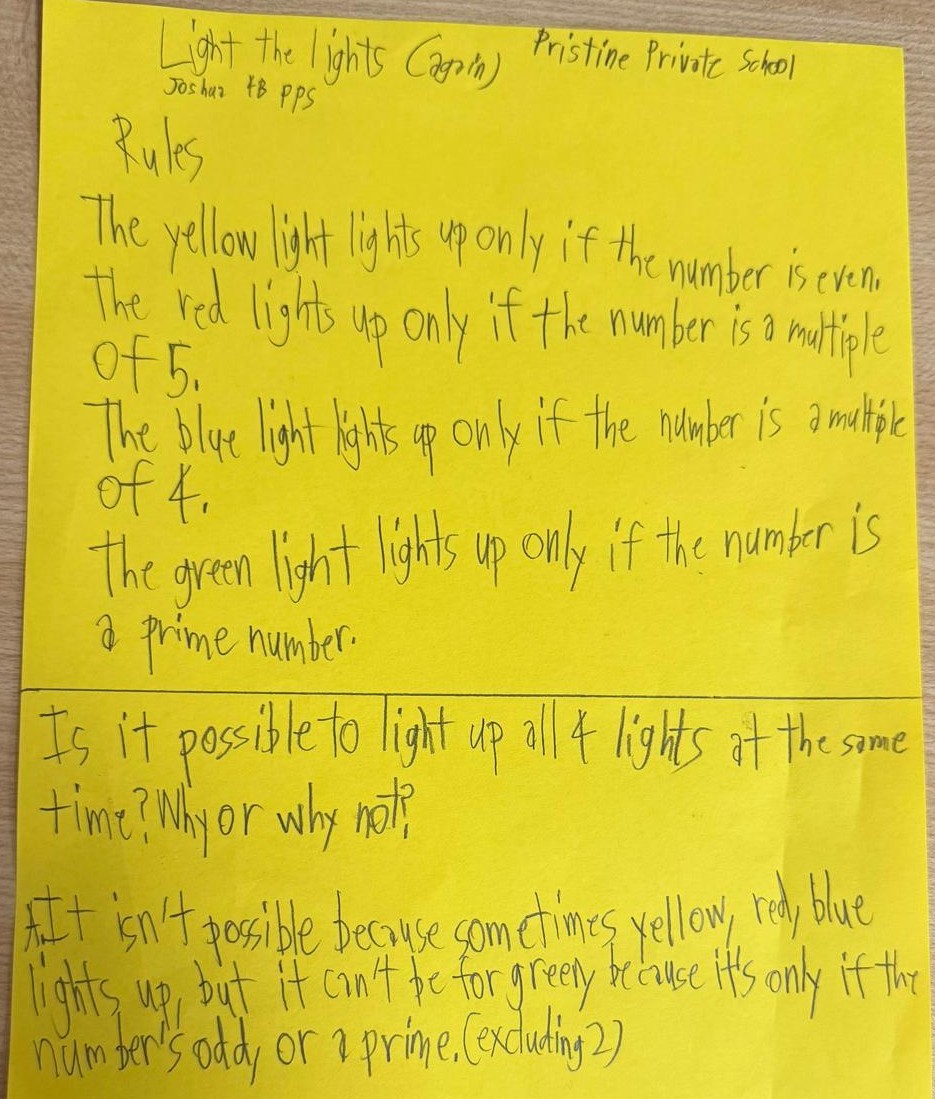 Light the lights (again) Pristine Private School
Joshua 4B PPS
Rules
The yellow light lights up only if the number is even.
The red lights up only if the number is a multiple
of 5.
The blue light lights up only if the number is a multiple
of 4.
The green light lights up only if the number is
a prime number.
Is it possible to light up all 4 lights at the same
time? Why or why not?
A. It isn't possible because sometimes, yellow, red, blue
lights up, but it can't be for green, because it's only if the
number's odd, or a prime. (excluding 2)